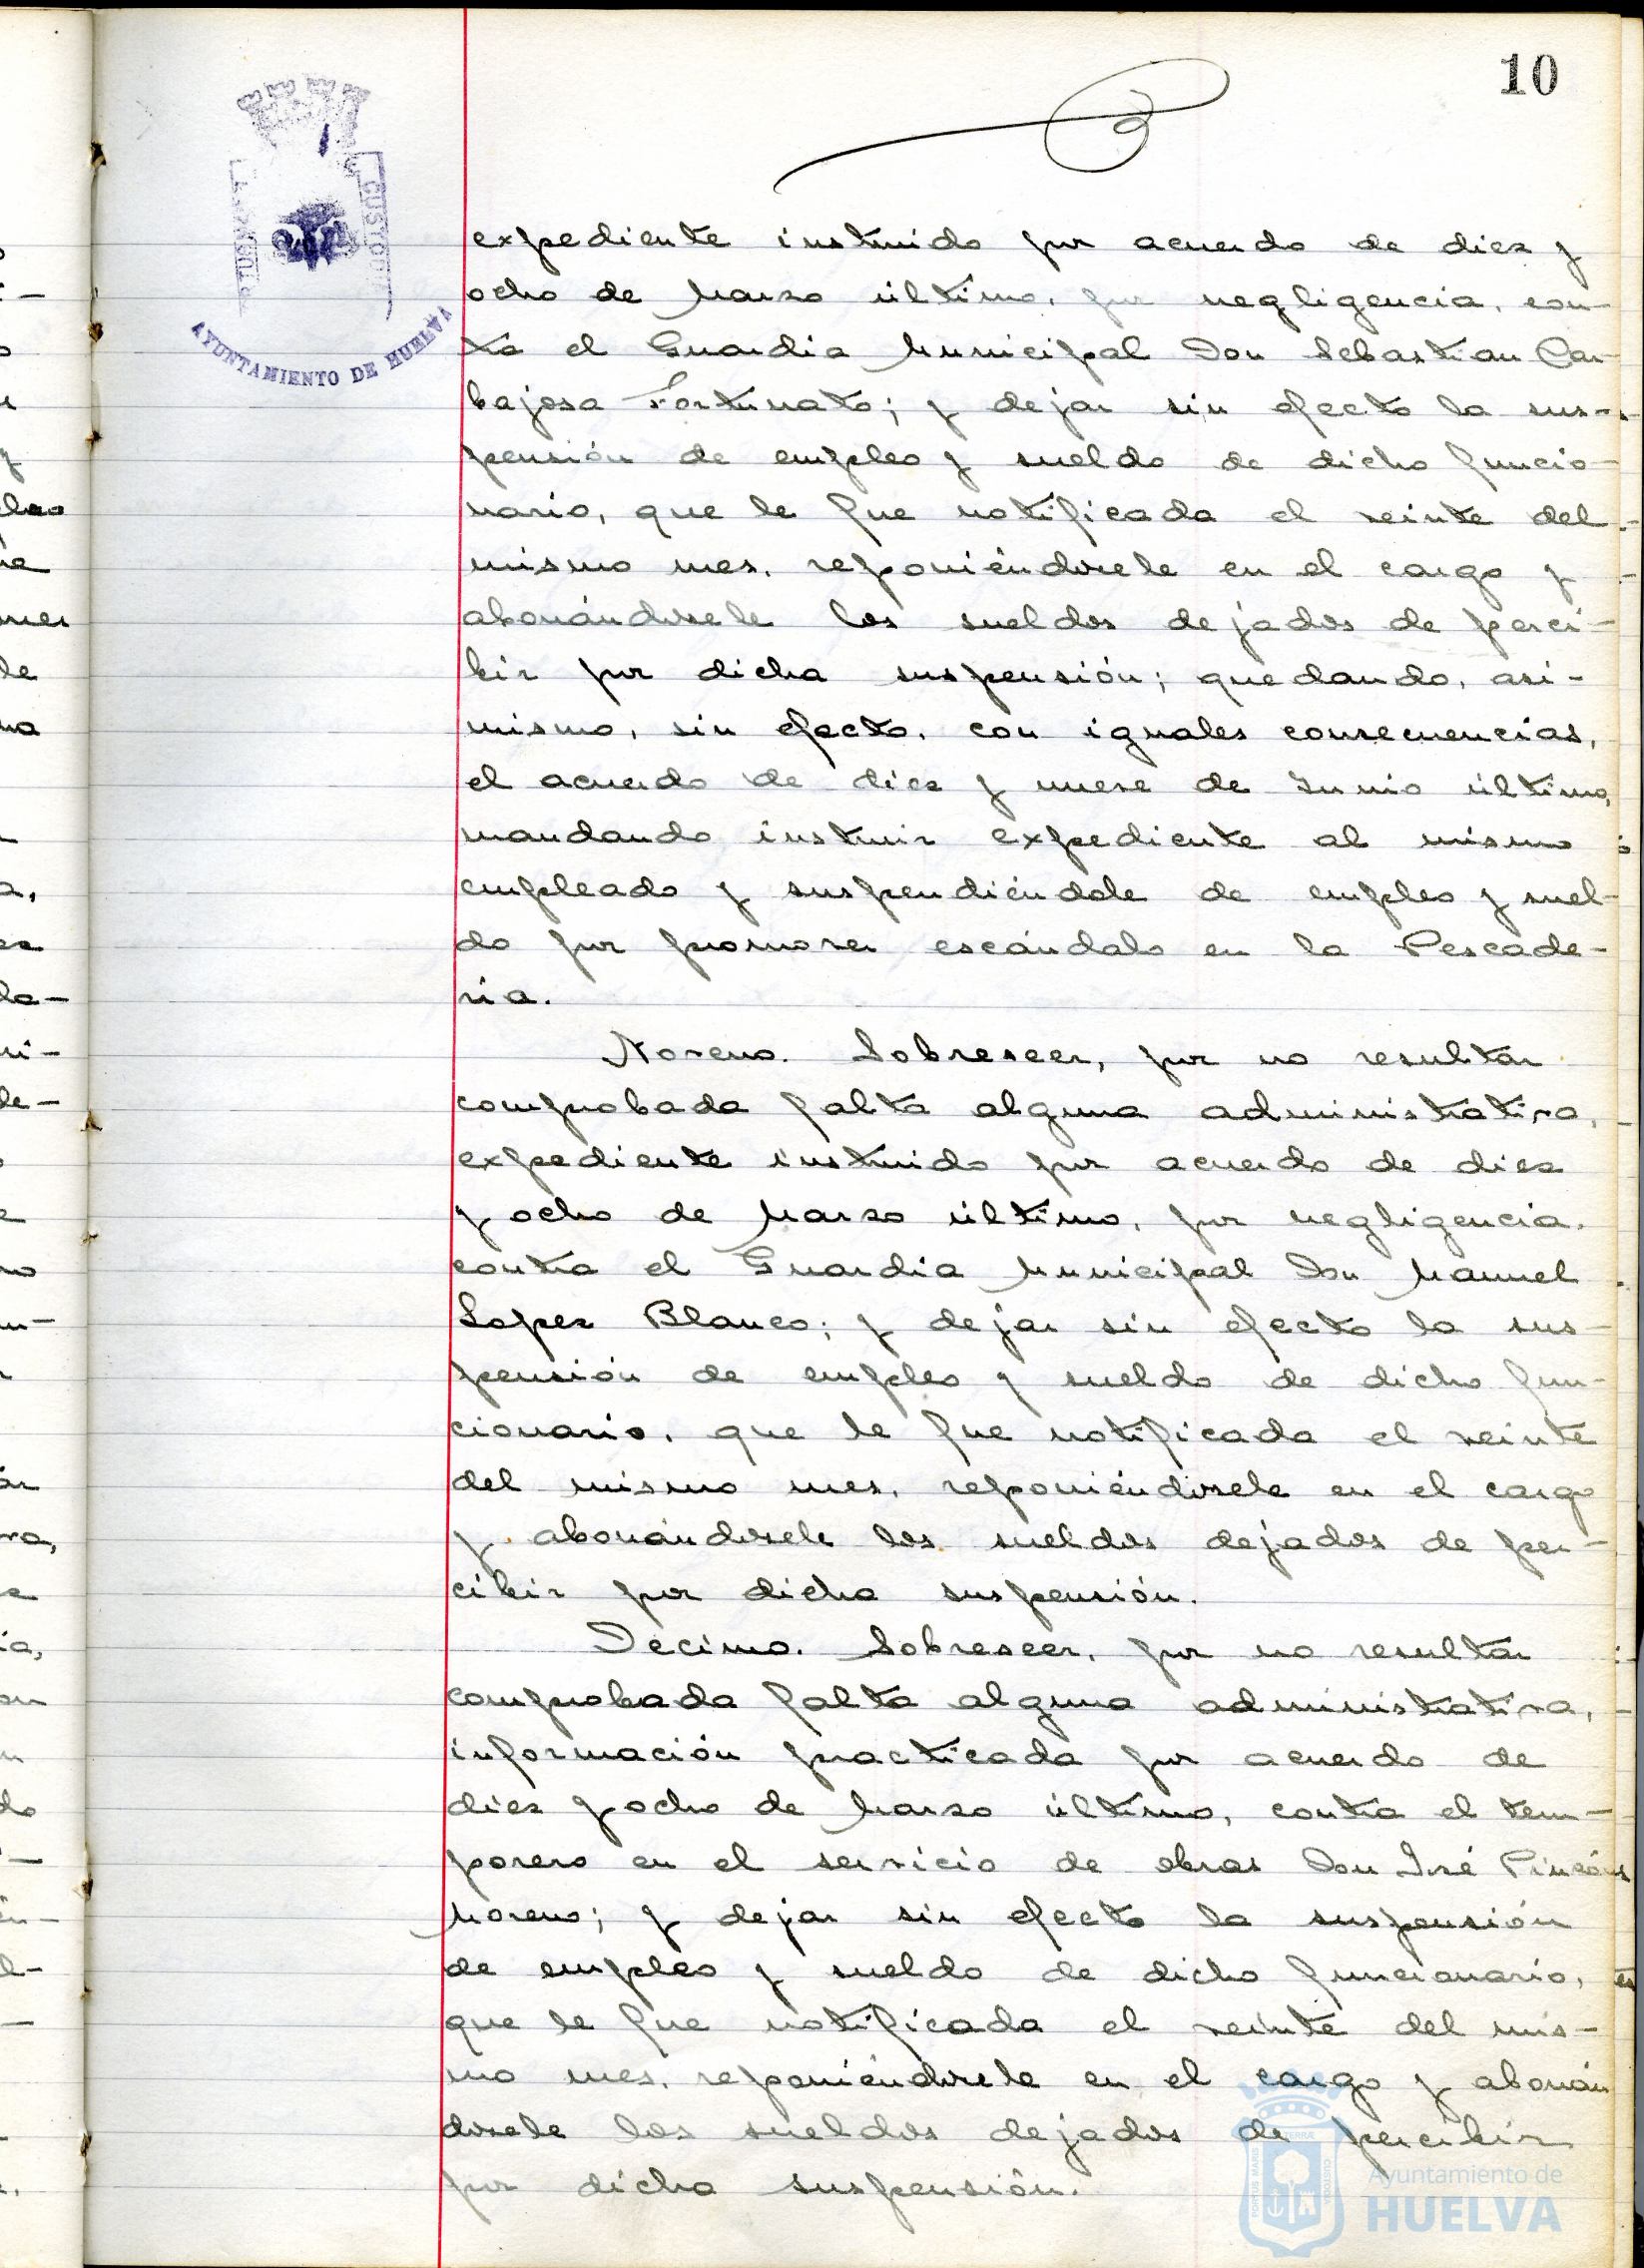 10
AYUNTAMIENTO DE HUELVA
expediente instruido por acuerdo de diez y
ocho de Marzo último, por negligencia, con-
tra el Guardia Municipal Don Sebastian Car-
bajosa Fortunato; y dejar sin efecto la sus-
pensión de empleo y sueldo de dicho funcio-
nario, que le fue notificada el veinte del
mismo mes, reponiéndosele en el cargo y
abonándosele los sueldos dejados de perci-
bir por dicha suspensión; quedando, asi-
mismo, sin efecto, con iguales consecuencias,
el acuerdo de diez y nueve de Junio último,
mandando instruir expediente al mismo
empleado y suspendiéndole de empleo y suel-
do por promover escándalo en la Pescade-
ria.
Noveno. Sobreseer, por no resultar
comprobada falta alguna administrativa,
expediente instruido por acuerdo de diez
y ocho de Marzo último, por negligencia,
contra el Guardia Municipal Don Manuel
Lopez Blanco; y dejar sin efecto la sus-
pensión de empleo y sueldo de dicho fun-
cionario, que le fue notificada el veinte
del mismo mes, reponiéndosele en el cargo
y abonándosele los sueldos dejados de per-
cibir por dicha suspensión.
Décimo. Sobreseer, por no resultar
comprobada falta alguna administrativa,
información practicada por acuerdo de
diez y ocho de Marzo último, contra el tem-
porero en el servicio de obras Don José
Moreno; y dejar sin efecto la suspensión
de empleo y sueldo de dicho funcionario,
que le fue notificada el veinte del mis-
mo mes, reponiéndosele en el cargo y abonán
dosele los sueldos dejados de percibir
por dicha suspensión.
Ayuntamiento de
HUELVA